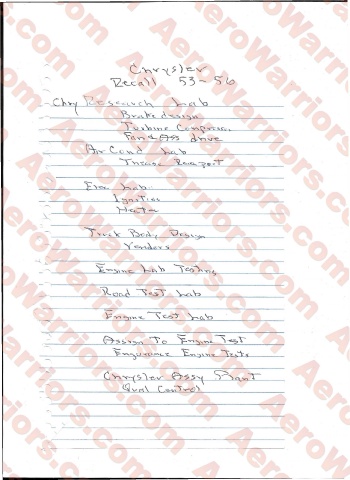 Chrysler
Recall 53-56
Chry Research Lab
Brake design
Turbine Compressor
Fan & Ass drive
Air Cond Lab
Elec Lab
Ignition
Heater
Truck Body Design
Vendors
Engine Lab Testing
Road Test Lab
Engine Test Lab
Assign To Engine Test
Engurance Engine Tests
Chrysler Assy Plant
Qual Control
AeroWarriors.com